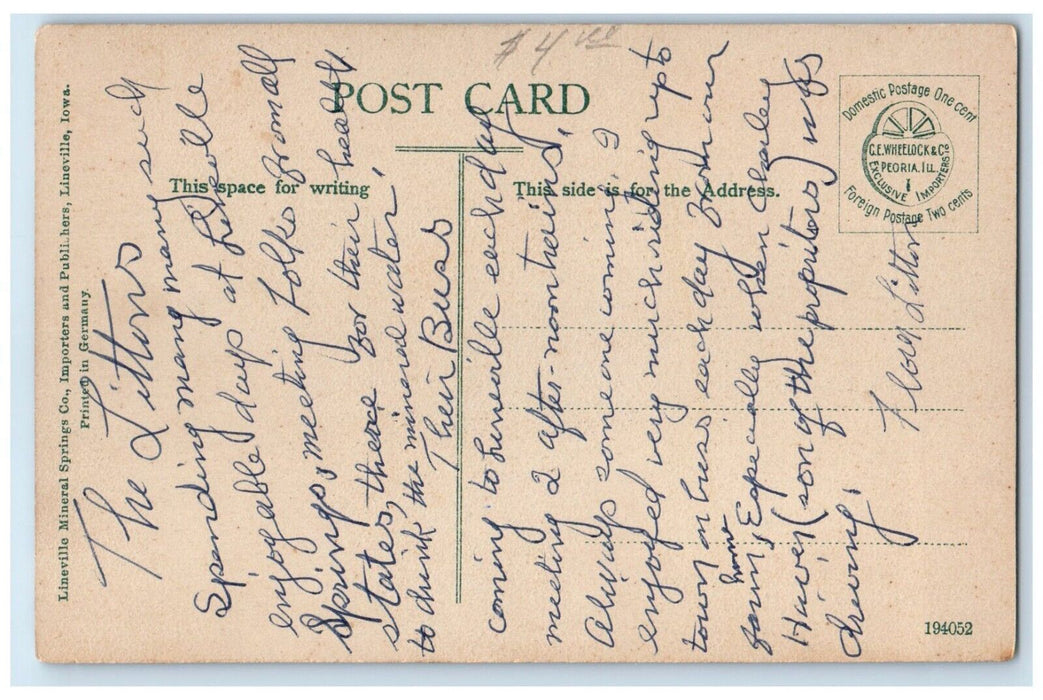 $4.00
POST CARD
This space for writing
This side is for the Address.
Domestic Postage One cent
C.E. WHEELOCK & Co
PEORIA. ILL.
EXCLUSIVE IMPORTERS
Foreign Postage Two cents
Lineville Mineral Springs Co., Importers and Publishers, Lineville, Iowa.
Printed in Germany.
The Littons
Spending many many such
enjoyable days at Lineville
Springs, meeting folks from all
states, there for their health
to drink the mineral water,
Their Buss
coming to Lineville each day
meeting 2 after-noon trains,
Always some one coming, I
enjoyed very much riding up to
town on buss each day from our
farm home, Especially when Charley
(son of the propritors) was
driving.
Litton
194052